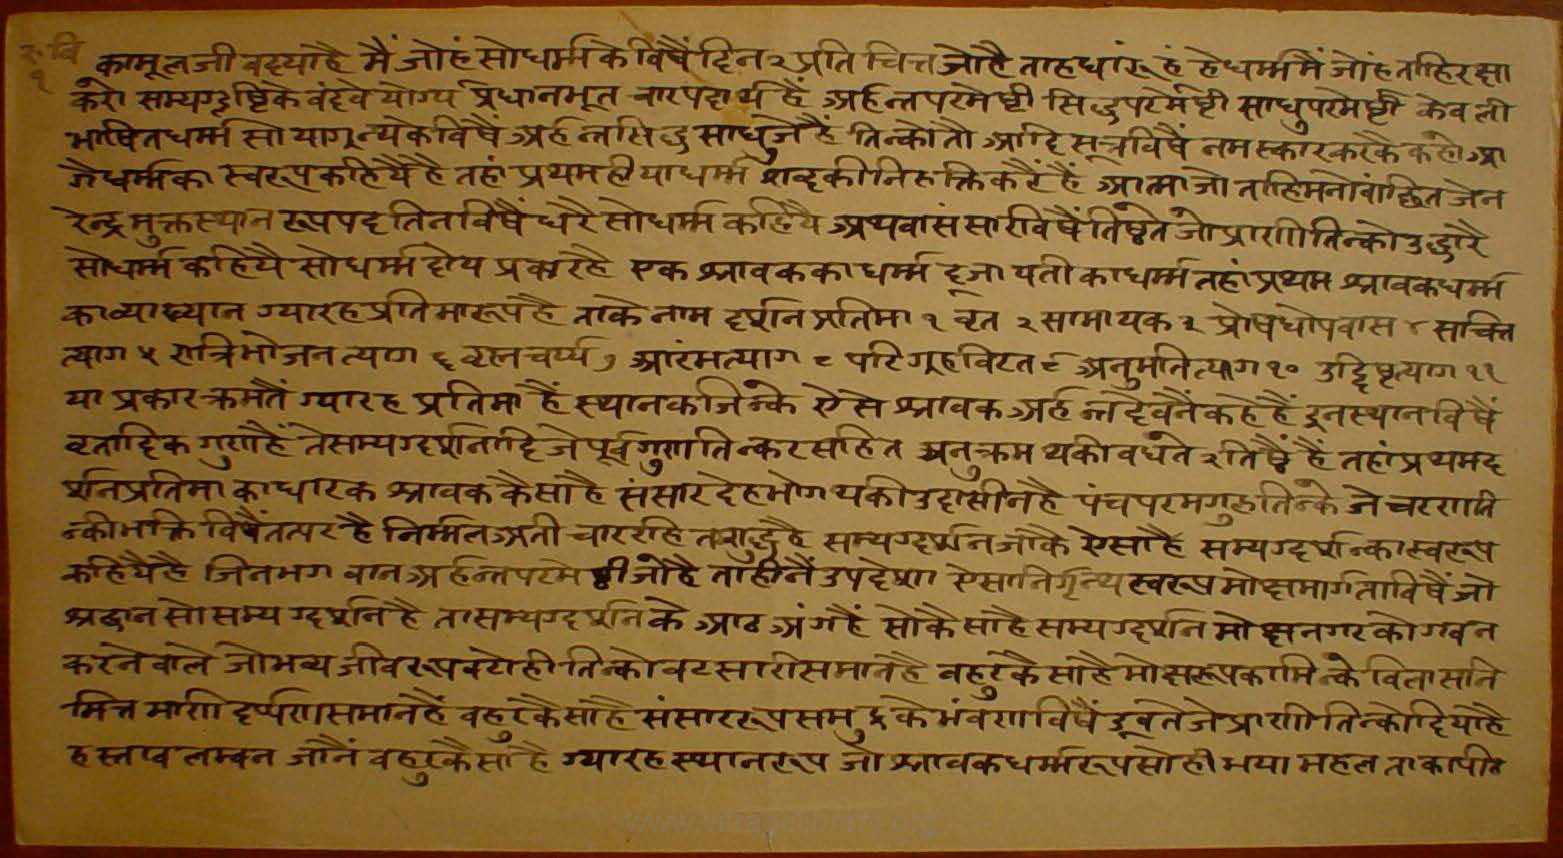 र. वि
१
का मूल जीवदया है मैं जो हं सो धर्म्म के विषैं दिन २ प्रति चित्त जो है ताह धारूं हं हे धर्म्म मैं जो हं ताहि रक्षा
करो सम्यग्दृष्टिके वंदवे योग्य प्रधानभूत चार पदार्थ हैं अर्हन्तपरमेष्टी सिद्धपरमेष्टी साधुपरमेष्टी केवली
भाषित धर्म्म सो या ग्रन्थ के विषैं अर्हन्त सिद्ध साधु जे हैं तिन्को तौ आदि सूत्र विषैं नमस्कार करकै कहो आ
गै धर्म्म का स्वरूप कहियै है तहां प्रथम ही या धर्म्म शब्द की निरुक्ति करैं हैं आत्मा जो ताहि मनोवांछित जे न
रेन्द्र मुक्तस्थान रूप पद तिन विषैं धरै सो धर्म्म कहियै अथवा संसार विषैं तिष्ठते जो प्राणी तिन्को उद्धारै
सो धर्म्म कहियै सो धर्म्म दोय प्रकार है एक श्रावक का धर्म्म दूजा यती का धर्म्म तहां प्रथम श्रावक धर्म्म
का व्याख्यान ग्यारह प्रतिमा रूप है ताके नाम दर्शन प्रतिमा १ वृत २ सामायक ३ प्रोषधोपवास ४ सचित्त
त्याग ५ रात्रिभोजन त्याग ६ वृह्मचर्य्य ७ आरंभत्याग ८ परिगृहविरत ९ अनुमतित्याग १० उद्दिष्टत्याग ११
या प्रकार क्रमतैं ग्यारह प्रतिमा हैं स्थानक जिन्के ऐसे श्रावक अर्हन्तदेवनै कहे हैं इन स्थान विषैं
वृतादिक गुण हैं ते सम्यग्दर्शनादि जे पूर्व गुण तिन्कर सहित अनुक्रम थकी वधते २ तिष्ठैं हैं तहां प्रथम द
र्शनप्रतिमा का धारक श्रावक कैसा है संसार देह भोग थकी उदासीन है पंच परम गुरु तिन्के जे चरण ति
न्की भक्ति विषैं तत्पर है निर्म्मल अतीचार रहित शुद्ध है सम्यग्दर्शन जाकै ऐसा है सम्यग्दर्शन्का स्वरूप
कहियै है जिनभगवान अर्हन्तपरमेष्ठी जो है ताहीनैं उपदेशा ऐसा निर्गृन्थ स्वरूप मोक्षमार्ग ता विषैं जो
श्रद्धान सो सम्यग्दर्शन है ता सम्यग्दर्शन के आठ अंग हैं सो कैसा है सम्यग्दर्शन मोक्ष नगर को गवन
करने वाले जो भव्य जीव रूप वटोही तिन्को वटसारी समान है वहुर कैसा है मोक्षरूप कामिन्के विलास नि
मित्त मणि दर्प्पण समान है वहुर कैसा है संसार रूप समुद्र के भंवरण विषैं डूवते जे प्राणी तिन्को दियो है
हस्ताव लम्वन जानैं वहुर कैसा है ग्यारह स्थान रूप जो श्रावक धर्म्म रूप सोही भया महल ताका पीठ